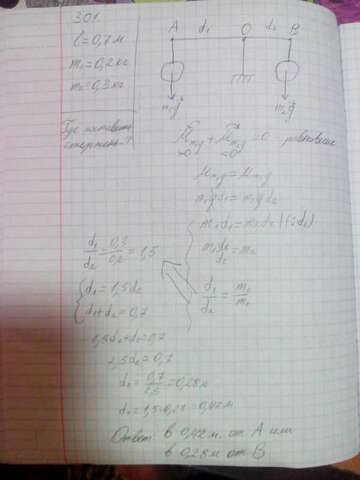 301.
l = 0,7 м
m₁ = 0,2 кг
m₂ = 0,3 кг
Где
A d₁ O d₂ B
m₁g m₂g
M m₁g + M m₂g = 0 - равновесие
>0 <0
M m₁g = M m₂g
m₁gd₁ = m₂gd₂
m₁d₁ = m₂d₂ |(:d₂)
m₁d₁/d₂ = m₂
d₁/d₂ = m₂/m₁
d₁/d₂ = 0,3/0,2 = 1,5
d₁ = 1,5d₂
d₁ + d₂ = 0,7
1,5d₂ + d₂ = 0,7
2,5d₂ = 0,7
d₂ = 0,7/2,5 = 0,28 м
d₁ = 1,5·0,28 = 0,42 м
Ответ: в 0,42 м. от A или
в 0,28 м от B.